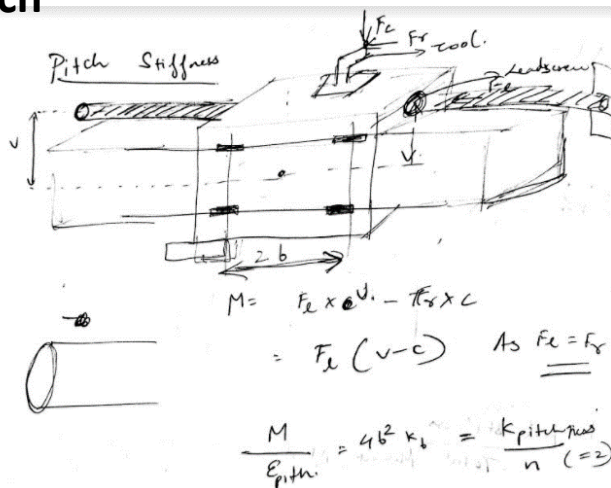 ch
Fc
Pitch Stiffness
Fr
tool.
Leadscrew
Fl
v
v.
2b
M = Fl x v. - Fr x c
= Fl (v-c) As Fl = Fr
M / Epitch. = 4b² Kb = Kpitch / n (=2)